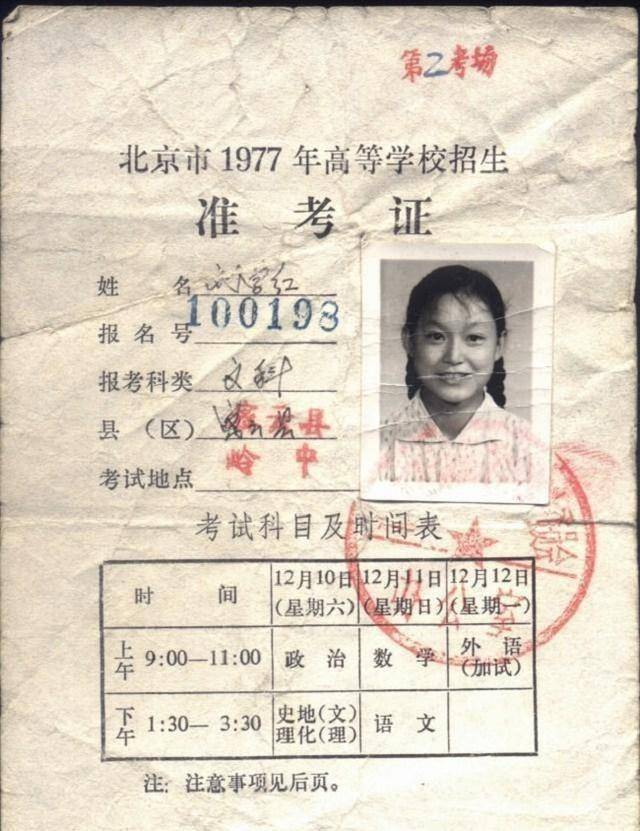 第2考场
北京市1977年高等学校招生
准考证
姓名 刘学红
报名号 100198
报考科类 文科
县（区） 密云县
考试地点 岭中
考试科目及时间表
时间 12月10日（星期六） 12月11日（星期日） 12月12日（星期一）
上午 9:00—11:00 政治 数学 外语（加试）
下午 1:30—3:30 史地（文）理化（理） 语文
注：注意事项见后页。